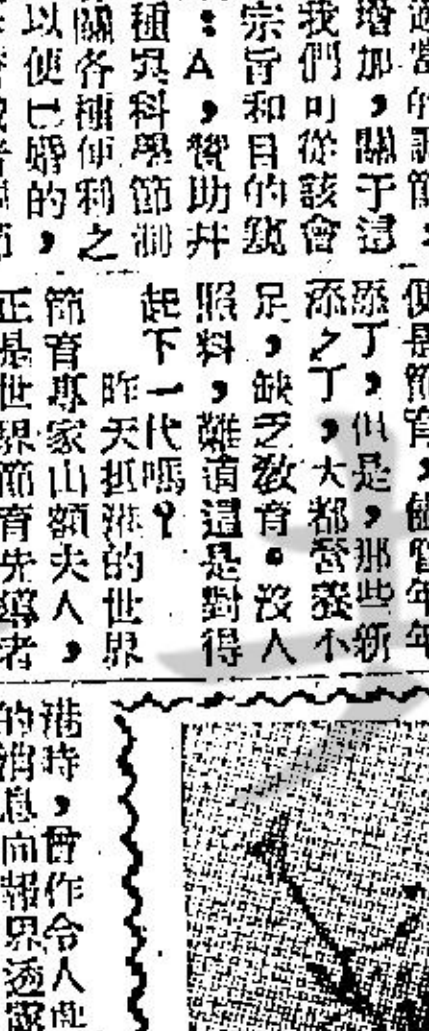 增加，關于這
我們可從該會
宗旨和目的
：A，贊助并
種與科學節制
關各種便利之
以便已婚的，
便是節育，儘管年年
添丁，但是，那些新
添之丁，大都營養不
足，缺乏教育。沒人
照料，難道這是對得
起下一代嗎？
昨天抵港的世界
節育專家山額夫人，
正是世界節育先導者
港時，曾作令人
的消息向報界透露